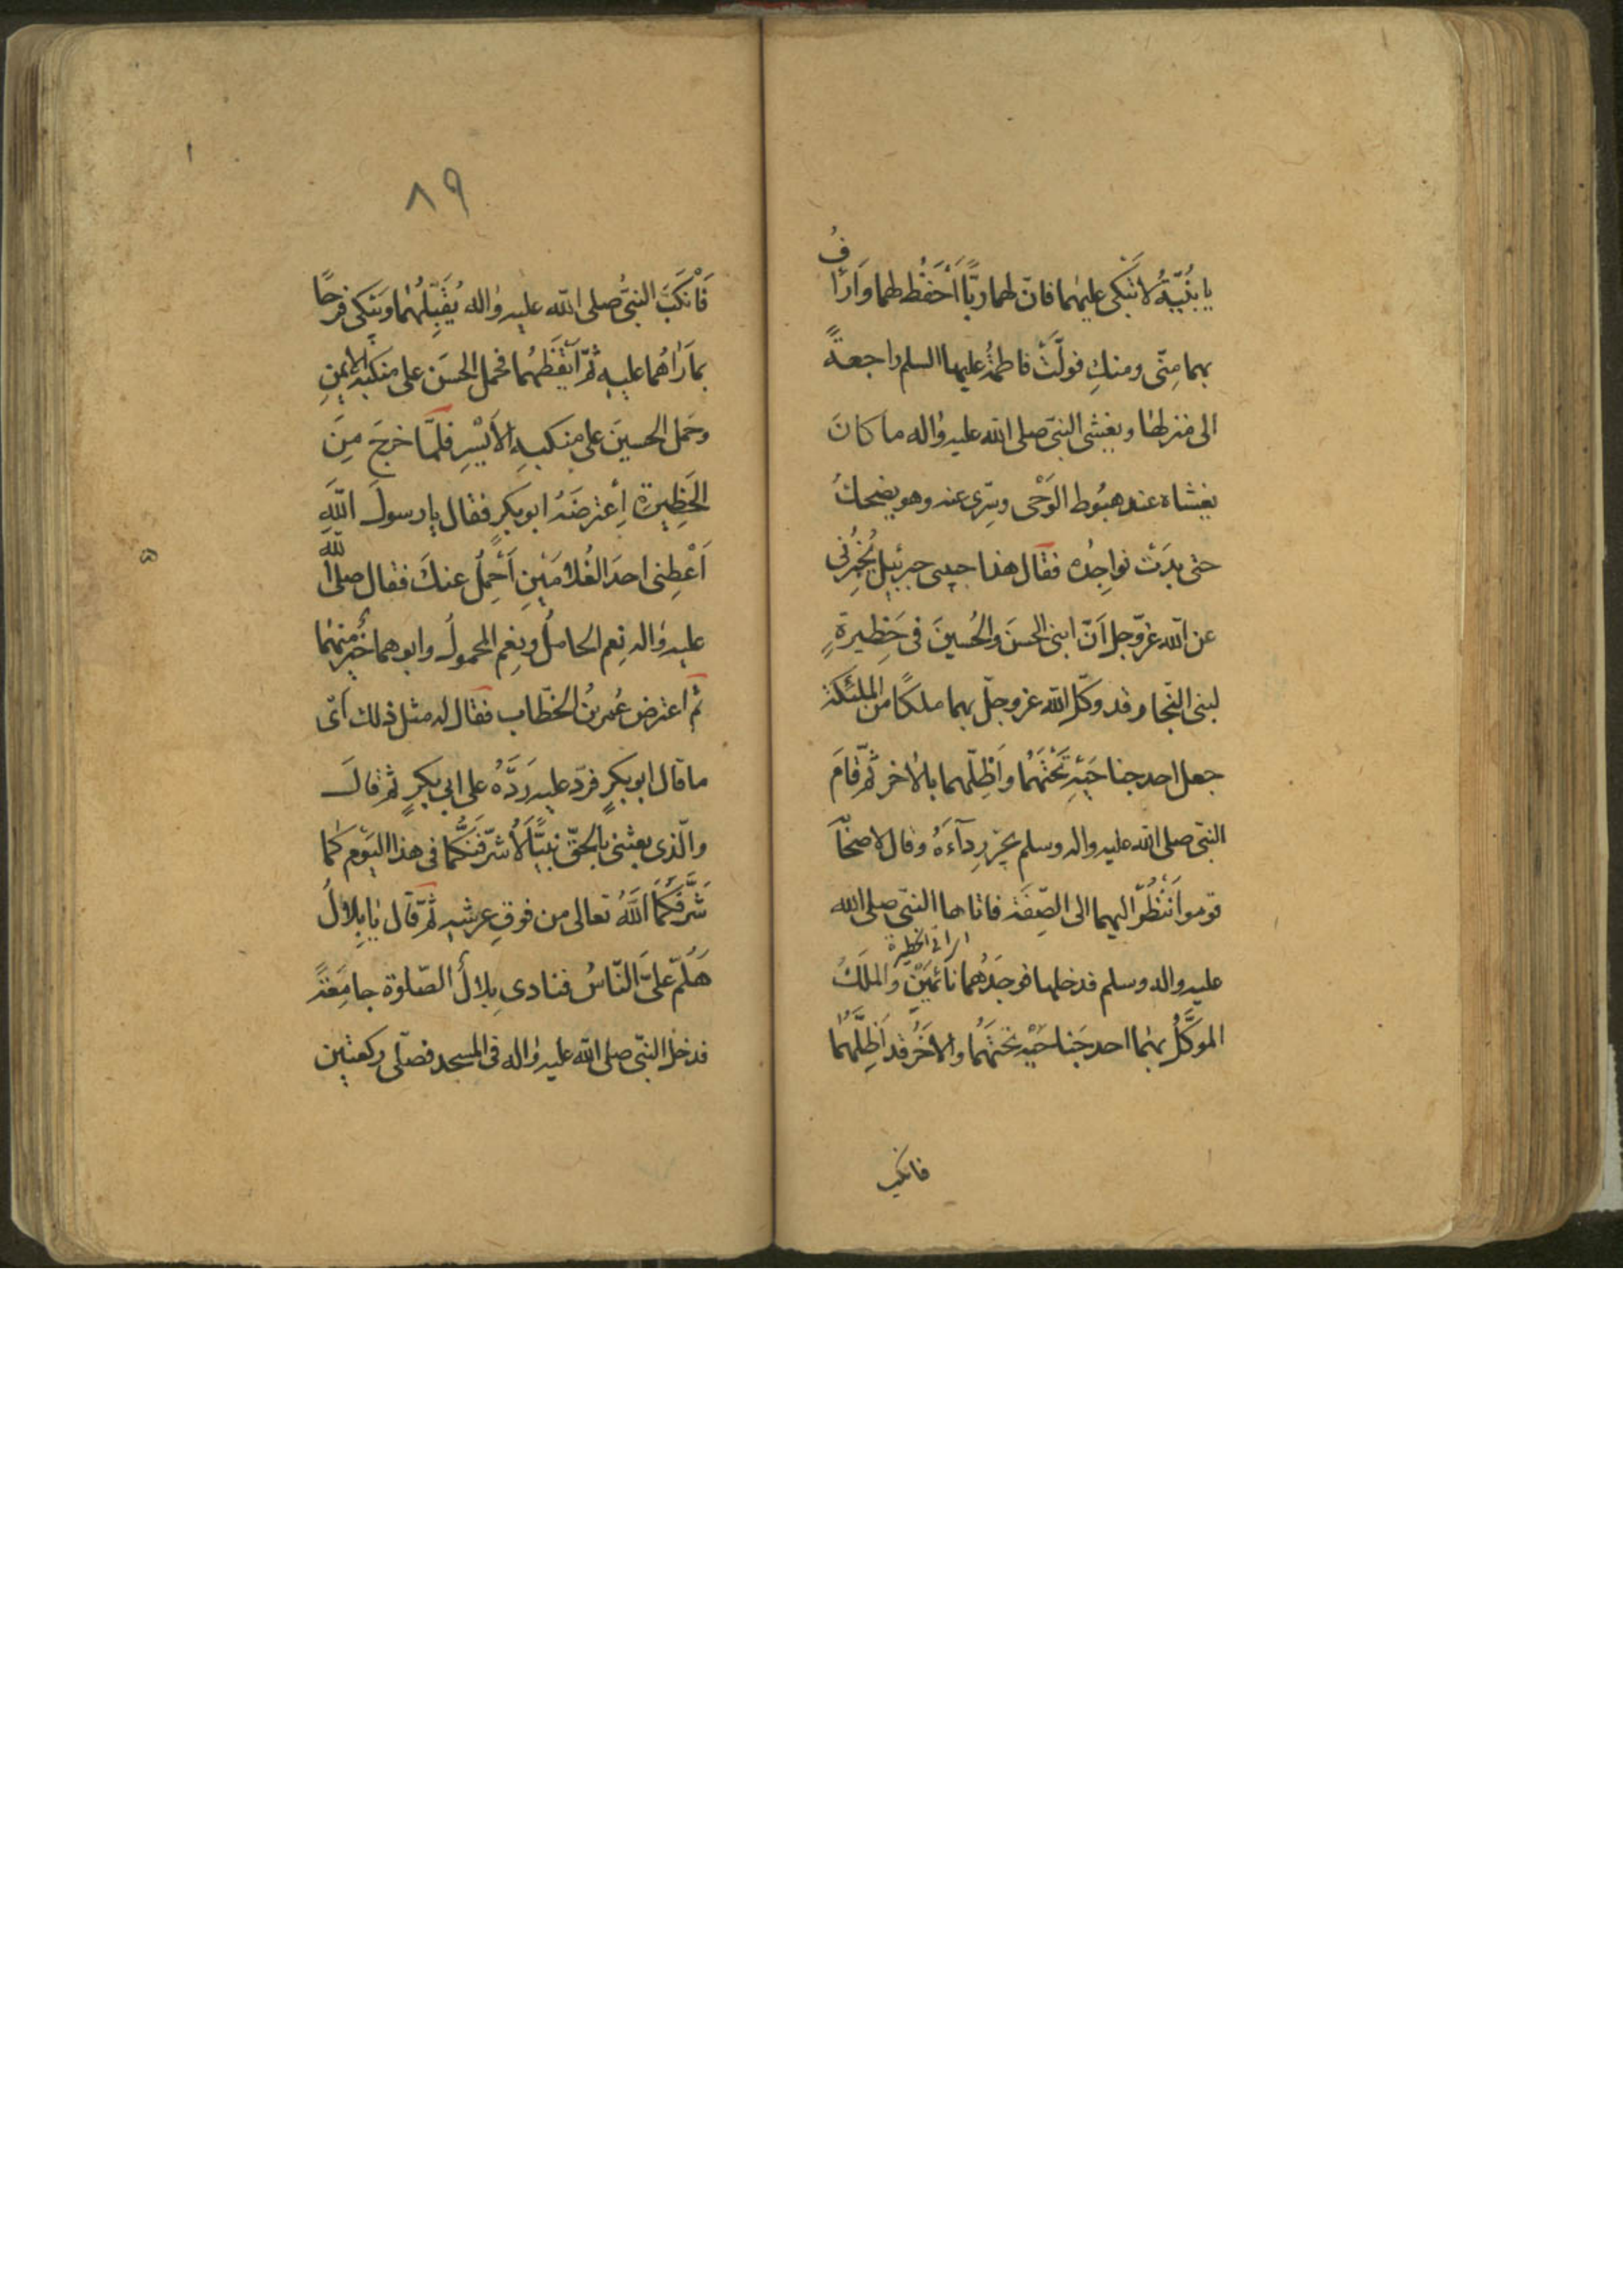 يا بنيّةُ لا تبكى عليهما فانّ لهما ربًّا أحفظ لهما واَراَفُ
بهما مِنّى ومنكِ فولّتْ فاطمةُ عليها السلم راجعةً
الى منزلها ويغشى النبىّ صلى الله عليه واله ما كانَ
يغشاه عند هبُوط الوَحْى وسرّى عنه وهو يضحكُ
حتى بدَتْ نواجِذُه فقال هذا حبيبى جبرئيل يُخْبِرُنى
عن الله عزّ وجل اَنّ ابنى الحسنَ والحُسينَ فى حَظِيرةٍ
لبنى النّجار وقد وكّل الله عز وجلّ بهما ملكًا من الملئكة
جعل احد جناحَيْهِ تَحْتَهُما واَظلّهما بالاخر ثمّ قامَ
النبّى صلى الله عليه واله وسلم يجرّ رِدآءَهُ وقال لاصحاَ
قوموا اَنْظُرُ اليهما الى الصِّفَة فاتاها النبّى صلى الله
عليه واله وسلم فدخلها فوجَدَهُما نائمَيْنِ والملَكُ
الموكَّلُ بهما احد جَناحَيْهِ تحتَهُما والاخَرُ قد اَظِلَّهُما
فانكب
٨٩
فَانكَبَّ النبىُّ صلى الله عليه واله يُقَبِّلُهُما وَيَبْكى فرحًا
بما رَاهُما عليه ثمّ اَيقَظَهُما فحمل الحسَن على منكَبِهِ الايمنِ
وحَمل الحسينَ على منكبِهِ الاَيْسَرِ فلمّا خرجَ مِنَ
الحَظِيرةِ اِعْترضَهُ ابو بكرٍ فقال يا رسولَ اللهِ
اَعْطِنى احدَ الغُلامَيْنِ اَحْمِلُ عنكَ فقال صلى الله
عليه واله نِعم الحاملُ ونِعم المحمولُ وابوهما خَيرٌ منهما
ثمّ اعترض عُمر بنُ الخطّاب فقال له مثل ذلك اَىّ
ما قال ابو بكرٍ فردّ عليه رَدَّهُ على ابى بكرٍ ثم قالَ
والّذى بعثنى بالحقّ نبيًّا لَاُشرّفَنَّكُما فى هذا اليَوْم كما
شَرَّفَكُما اللهُ تعالى من فوقِ عرشه ثمّ قال يا بِلالُ
هَلُمّ علىَّ النّاسُ فنادى بِلالُ الصّلوة جامِعَةً
فدخل النبّى صلى الله عليه واله فى المسجد فصلّى ركعتين